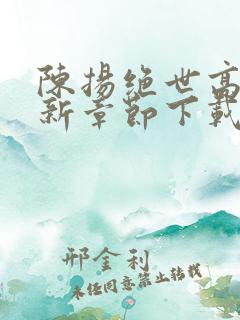 陳揚絕世高
新章節下載
邢金利
未经同意禁止转载